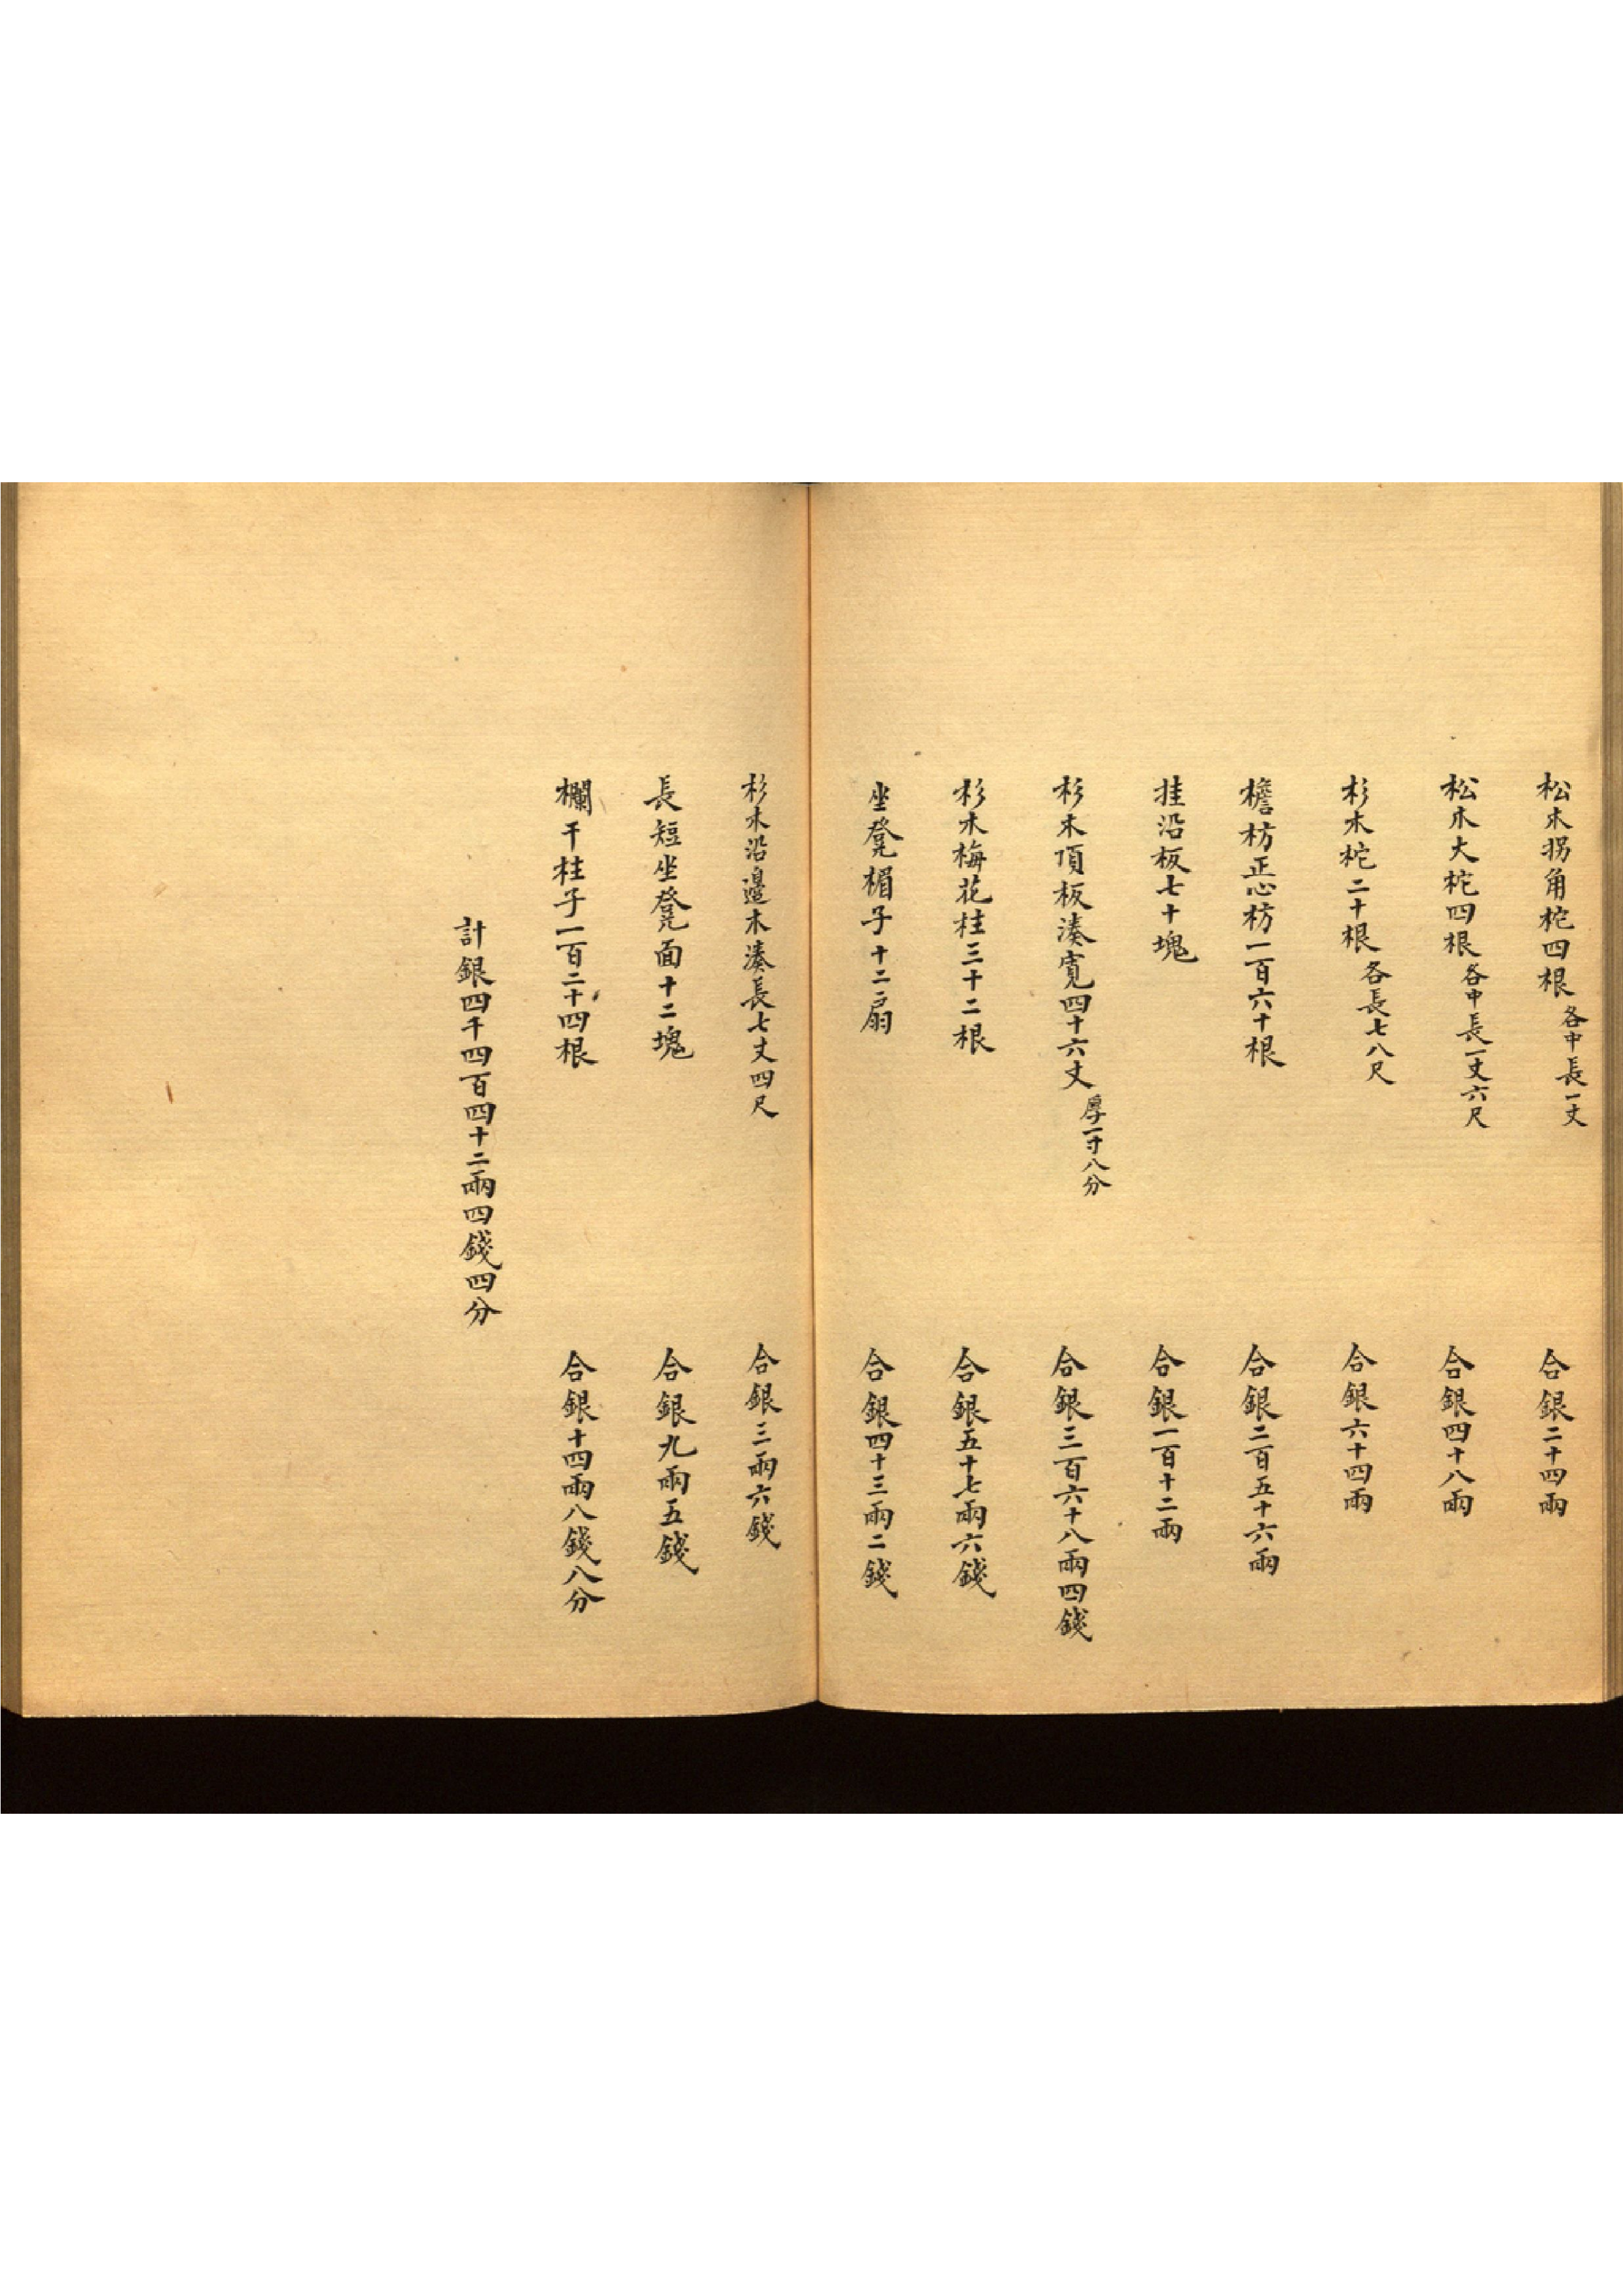 松木拐角柁四根各中長一丈 合銀二十四兩
松木大柁四根各中長一丈六尺 合銀四十八兩
杉木柁二十根各長七八尺 合銀六十四兩
檐枋正心枋一百六十根 合銀二百五十六兩
挂沿板七十塊 合銀一百十二兩
杉木頂板湊寬四十六丈厚一寸八分 合銀三百六十八兩四錢
杉木梅花柱三十二根 合銀五十七兩六錢
坐凳楣子十二扇 合銀四十三兩二錢
杉木沿邊木湊長七丈四尺 合銀三兩六錢
長短坐凳面十二塊 合銀九兩五錢
欄干柱子一百二十四根 合銀十四兩八錢八分
計銀四千四百四十二兩四錢四分